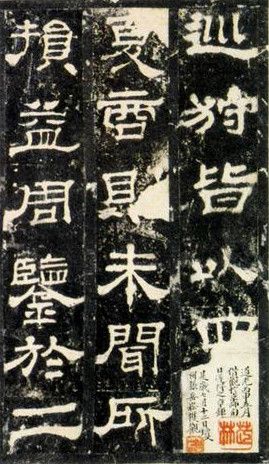 巡狩皆以四
夏商則未聞所
損益周鑒於二